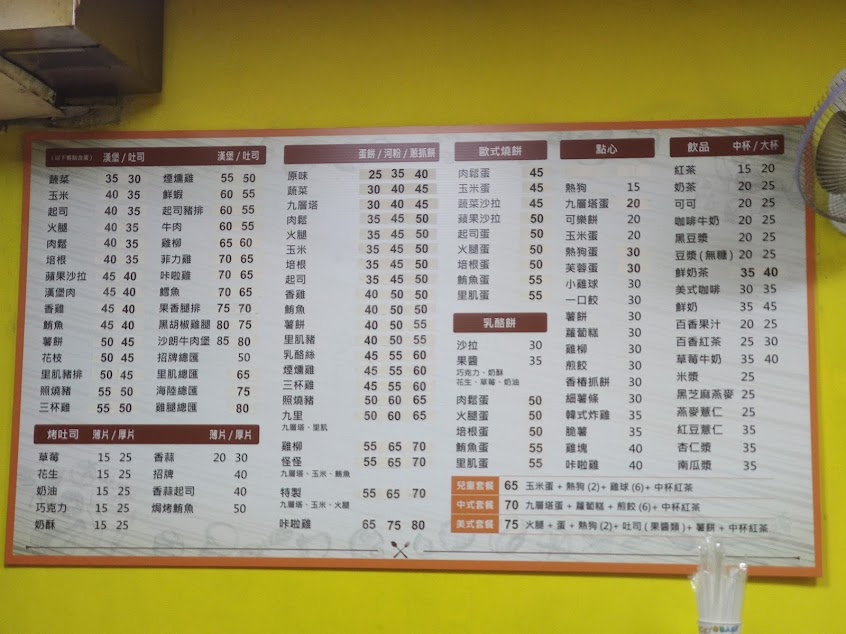 (以下餐點含蛋) 漢堡 / 吐司
蔬菜 35 30
玉米 40 35
起司 40 35
火腿 40 35
肉鬆 40 35
培根 40 35
蘋果沙拉 45 40
漢堡肉 45 40
香雞 45 40
鮪魚 45 40
薯餅 50 45
花枝 50 45
里肌豬排 50 45
照燒豬 55 50
三杯雞 55 50
漢堡 / 吐司
煙燻雞 55 50
鮮蝦 60 55
起司豬排 60 55
牛肉 60 55
雞柳 65 60
菲力雞 70 65
咔啦雞 70 65
鱈魚 70 65
果香腿排 75 70
黑胡椒雞腿 80 75
沙朗牛肉堡 85 80
招牌總匯 60
里肌總匯 65
海陸總匯 75
雞腿總匯 80
烤吐司 薄片 / 厚片
草莓 15 25
花生 15 25
奶油 15 25
巧克力 15 25
奶酥 15 25
薄片 / 厚片
香蒜 20 30
招牌 40
香蒜起司 40
焗烤鮪魚 50
蛋餅 / 河粉 / 蔥抓餅
原味 25 35 40
蔬菜 30 40 45
九層塔 30 40 45
肉鬆 35 45 50
火腿 35 45 50
玉米 35 45 50
培根 35 45 50
起司 35 45 50
香雞 40 50 50
鮪魚 40 50 50
薯餅 40 50 55
里肌豬 40 50 55
乳酪絲 45 55 60
煙燻雞 45 55 60
三杯雞 45 55 60
照燒豬 50 60 65
九里 50 60 65
九層塔、里肌
雞柳 55 65 70
怪怪 55 65 70
九層塔、玉米、鮪魚
特製 55 65 70
九層塔、玉米、火腿
咔啦雞 65 75 80
歐式燒餅
肉鬆蛋 45
玉米蛋 45
蔬菜沙拉 45
蘋果沙拉 50
起司蛋 50
火腿蛋 50
培根蛋 50
鮪魚蛋 55
里肌蛋 55
乳酪餅
沙拉 30
果醬 35
巧克力、奶酥
花生、草莓、奶油
肉鬆蛋 50
火腿蛋 50
培根蛋 50
鮪魚蛋 55
里肌蛋 55
點心
熱狗 15
九層塔蛋 20
可樂餅 20
玉米蛋 20
熱狗蛋 30
芙蓉蛋 30
小雞球 30
一口餃 30
薯餅 30
蘿蔔糕 30
雞柳 30
煎餃 30
香椿抓餅 30
細薯條 30
韓式炸雞 35
脆薯 35
雞塊 40
咔啦雞 40
飲品 中杯 / 大杯
紅茶 15 20
奶茶 20 25
可可 20 25
咖啡牛奶 20 25
黑豆漿 20 25
豆漿 (無糖) 20 25
鮮奶茶 35 40
美式咖啡 30 35
鮮奶 35 45
百香果汁 20 25
百香紅茶 25 30
草莓牛奶 35 40
米漿 25
黑芝麻燕麥 25
燕麥薏仁 25
紅豆薏仁 35
杏仁漿 35
南瓜漿 35
兒童套餐 65 玉米蛋 + 熱狗 (2)+ 雞球 (6)+ 中杯紅茶
中式套餐 70 九層塔蛋 + 蘿蔔糕 + 煎餃 (6)+ 中杯紅茶
美式套餐 75 火腿 + 蛋 + 熱狗 (2)+ 吐司 ( 果醬類 )+ 薯餅 + 中杯紅茶